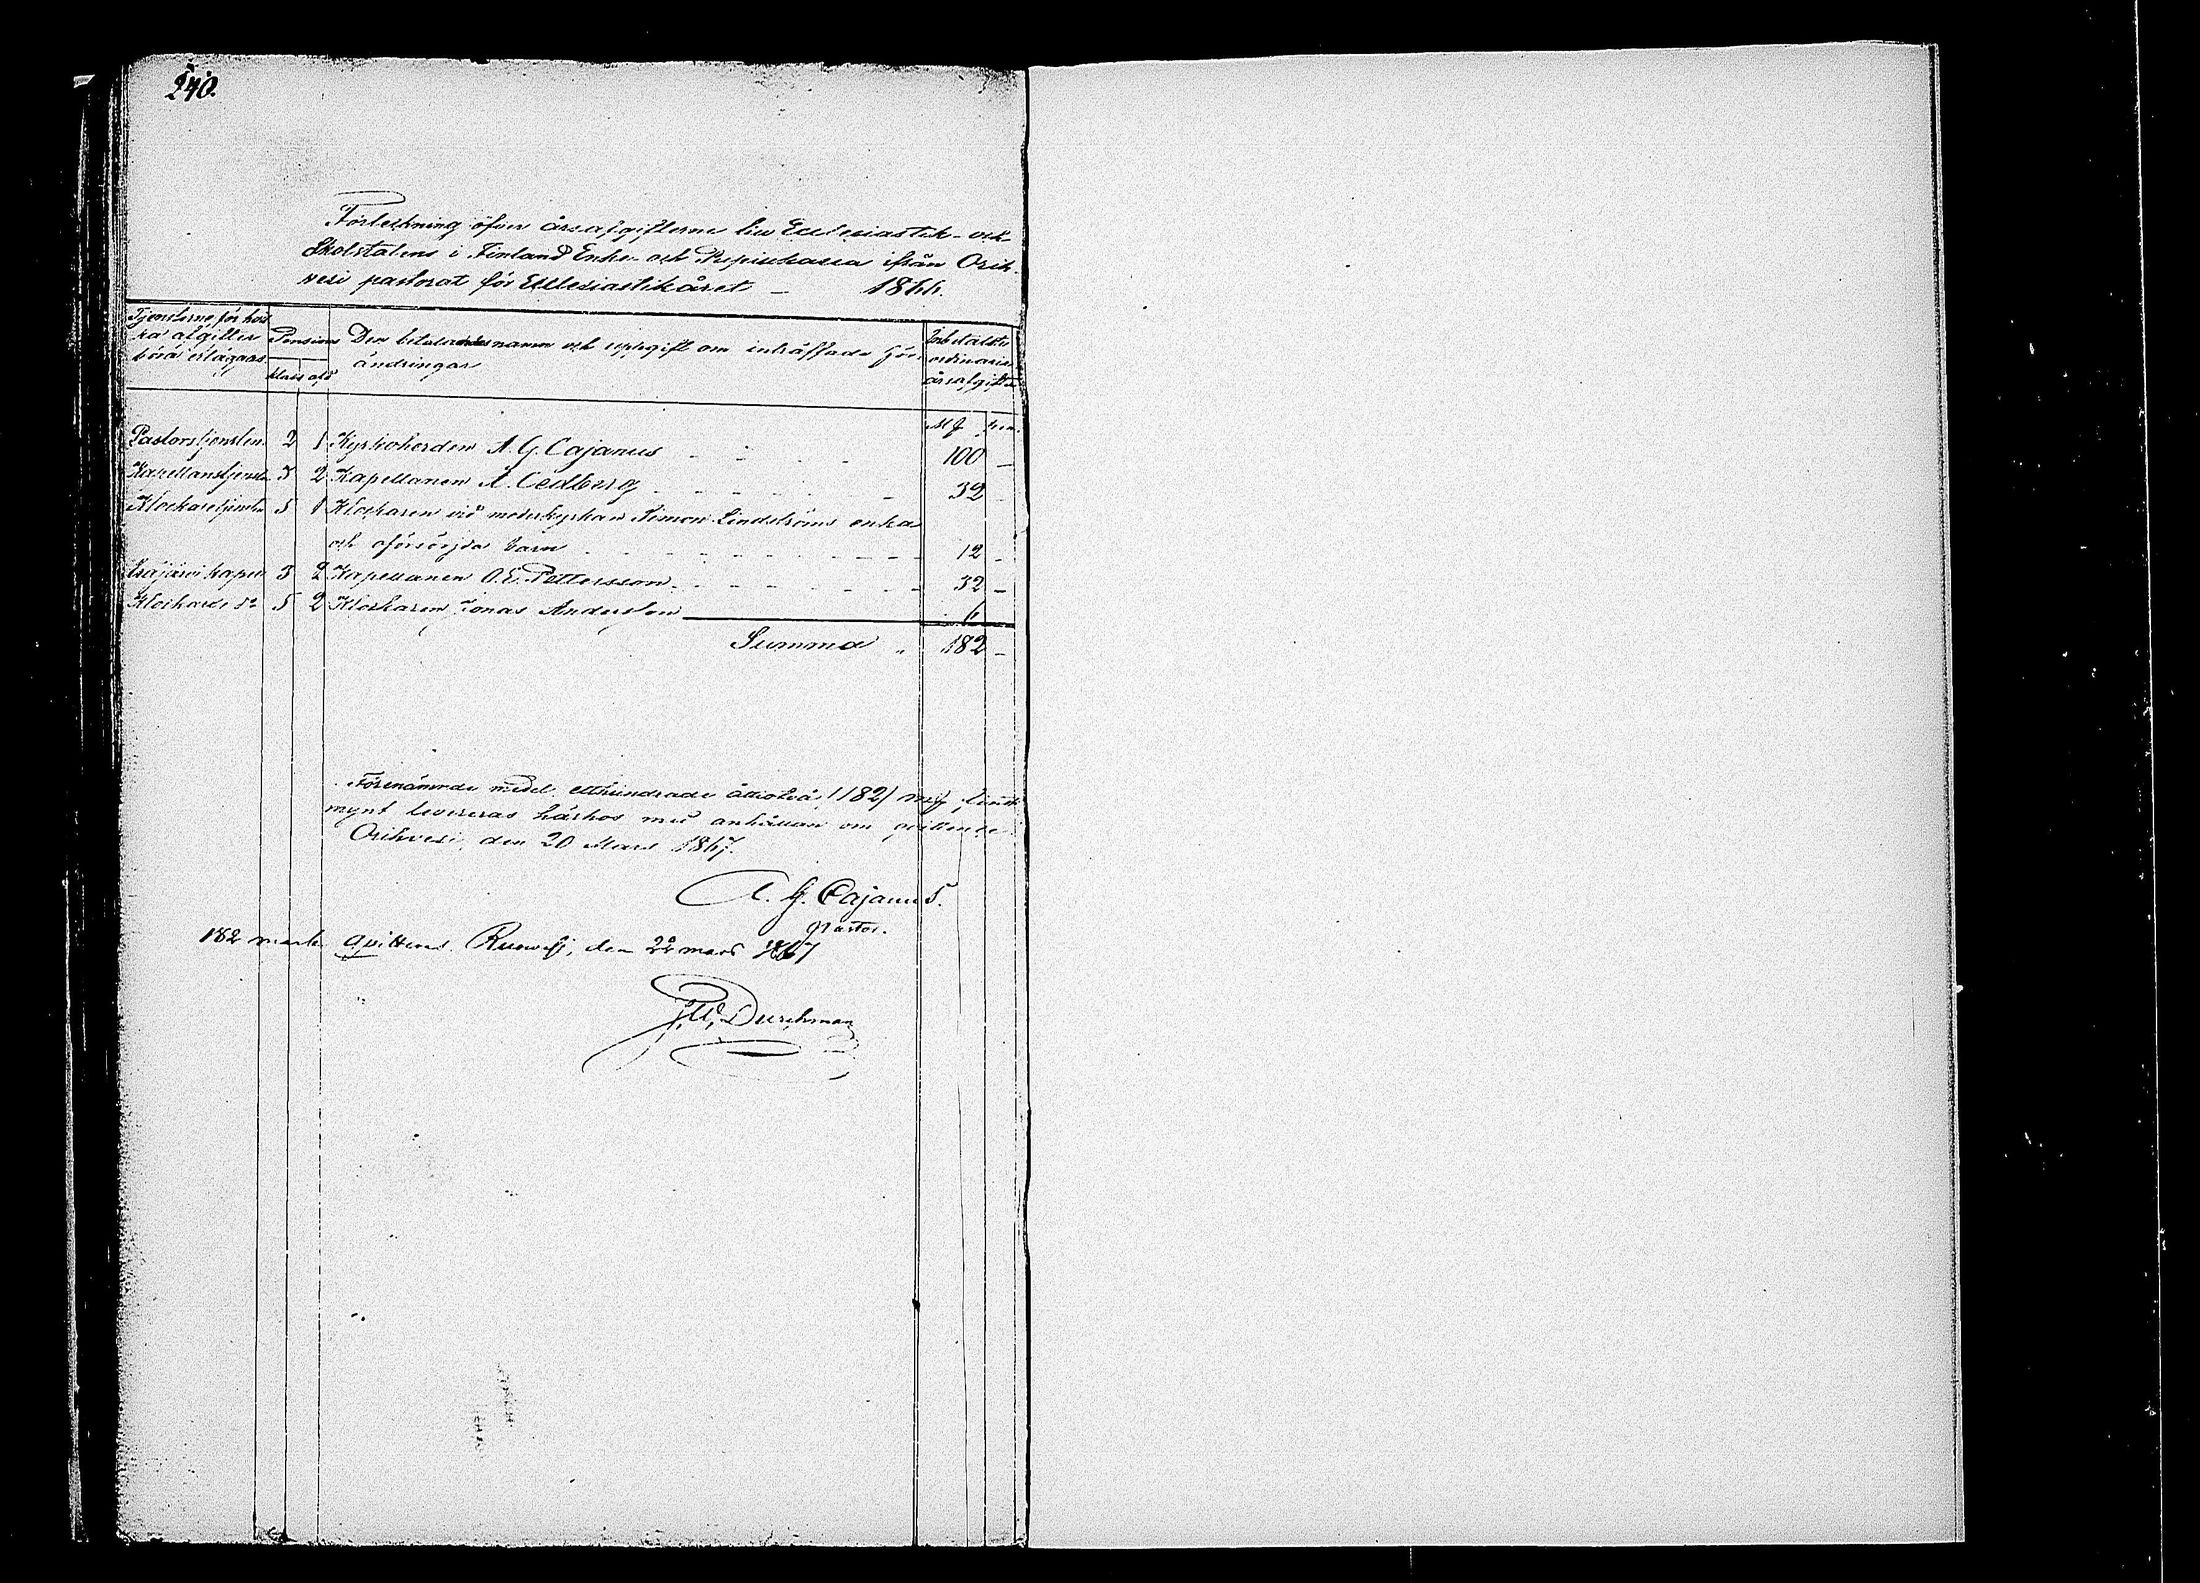 240.
Förteckning öfver årsafgifterne till Ecclesiastik- och
Skolstatens i Finland Enke- och Pupillkassa ifrån Orih-
vesi pastorat för Ecclesiastikåret – 1866.
Tjensterne för hvil-
ka afgifter
böra erläggas.
Pensions
klass afd
Den betalandes namn och uppgift om inträffade för-
ändringar
Inbetalte
ordinarie
årsafgifter
Mk pen.
Pastorstjensten 2 1 Kyrkoherden A. G. Cajanus 100 –
Kapellanstjensten 3 2 Kapellanen A. Cedberg 32 –
Klockaretjensten 5 1 Klockaren vid moderkyrkan Simon Lindströms enka
och oförsörjda barn 12 –
3 2 Kapellanen O. E. Pettersson 32 –
Klockare do 5 2 Klockaren Jonas Anderson 6
Summa " 182 –
Förenämnde medel etthundrade åttiotvå (182) mk finskt
mynt levereras härhos med anhållan om qvittence
Orihvesi, den 20 Mars 1867.
A. G. Cajanus.
Pastor.
182 mark qvitteras. Ruovesi, den 22 mars 1867
J. W. Durchman